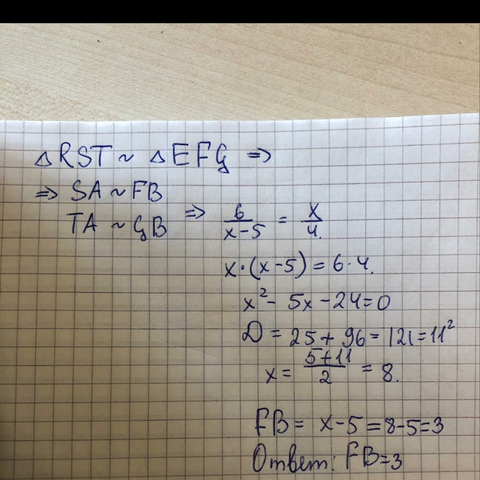 △RST ~ △EFG ⇒
⇒ SA ~ FB
TA ~ GB ⇒ 6/(x-5) = x/4.
x·(x-5) = 6·4.
x² - 5x - 24 = 0
D = 25 + 96 = 121 = 11²
x = (5+11)/2 = 8.
FB = x-5 = 8-5 = 3
Ответ: FB = 3